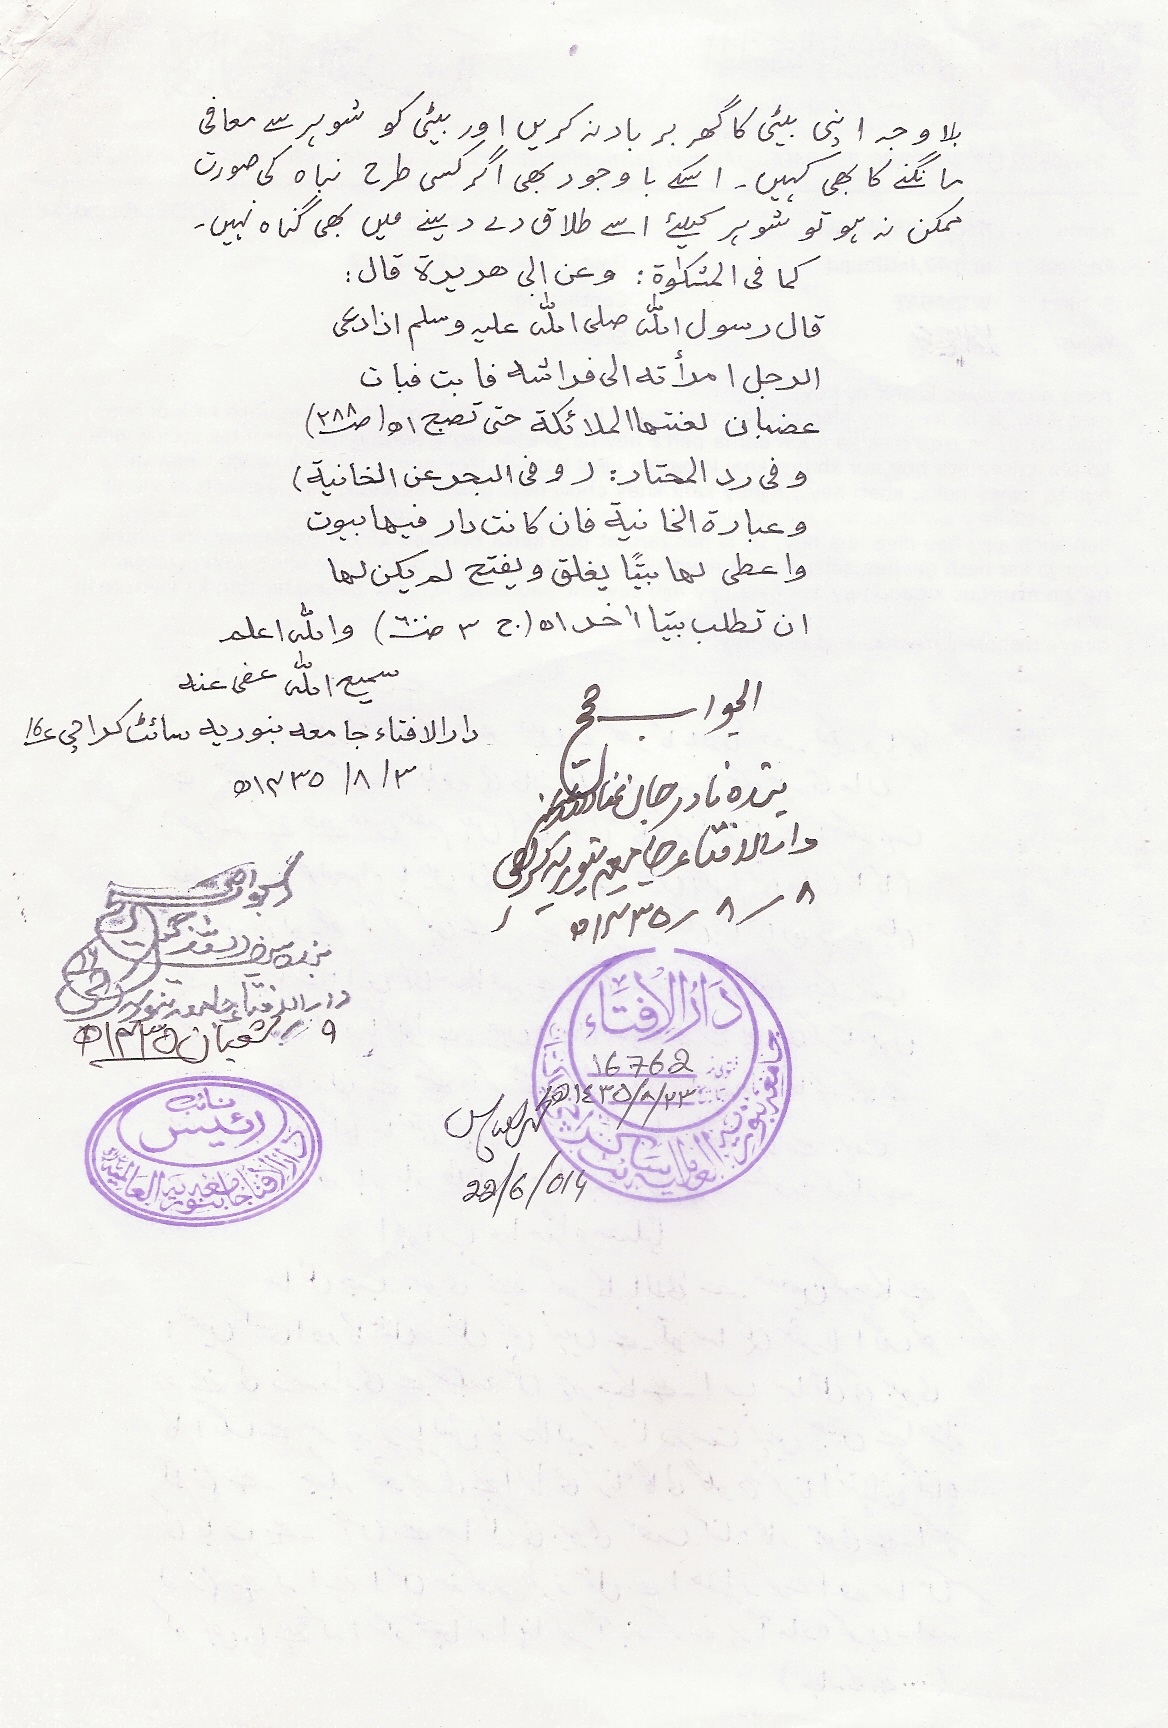 بلا وجہ اپنی بیٹی کا گھر برباد نہ کریں اور بیٹی کو شوہر سے معافی
مانگنے کا بھی کہیں۔ اسکے باوجود بھی اگر کسی طرح نباہ کی صورت
ممکن نہ ہو تو شوہر کیلئے اسے طلاق دے دینے میں بھی گناہ نہیں۔
کما فی المشکوٰۃ: وعن ابی ھریرۃ قال:
قال رسول اللہ صلی اللہ علیہ وسلم اذا دعی
الرجل امرأتہ الی فراشہ فابت فبات
غضبان لعنتھا الملائکۃ حتی تصبح اھ (ص۲۸۸)
وفی رد المحتار: (وفی البحر عن الخانیۃ)
وعبارۃ الخانیۃ فان کانت دار فیھا بیوت
واعطی لھا بیتًا یغلق ویفتح لم یکن لھا
ان تطلب بیتا اٰخر اھ (ج ۳ ص۶۰۰) واللہ اعلم
سمیع اللہ عفی عنہ
دار الافتاء جامعہ بنوریہ سائٹ کراچی ۱۶
۳/۸/۱۴۳۵ھ
الجواب صحیح
بندہ نادر جان
دار الافتاء جامعہ بنوریہ کراچی
۸/۸/۱۴۳۵ھ
الجواب صحیح
دار الافتاء جامعہ بنوریہ
۹ شعبان ۱۴۳۵ھ
دَارُ الاِفتَاء
16762
۲۳/۸/۱۴۳۵ھ
جامعہ بنوریہ العالمیہ
22/6/014
نائب
رئیس
دار الافتاء جامعہ بنوریہ العالمیہ